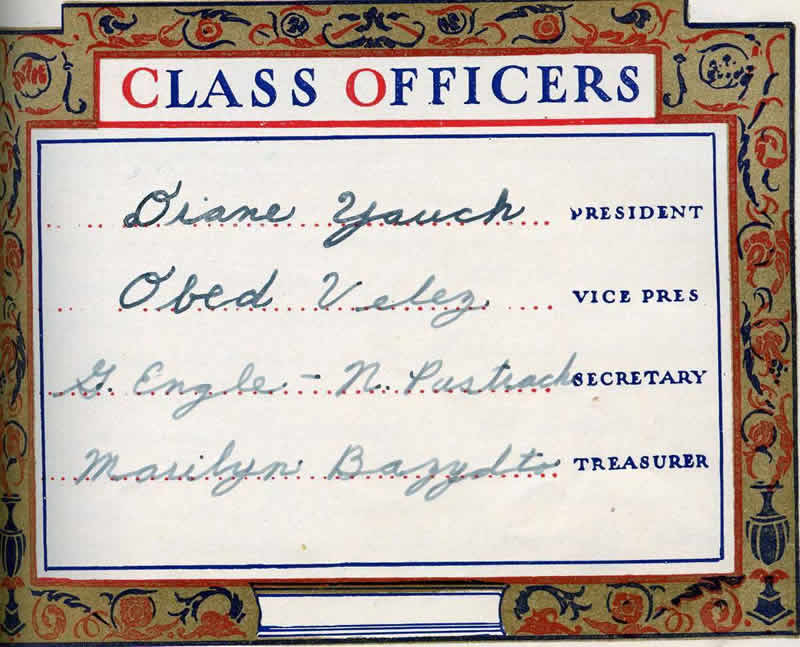 CLASS OFFICERS
Diane Yauch PRESIDENT
Obed Velez VICE PRES
G. Engle - N. Pastrach SECRETARY
Marilyn Bazydto TREASURER